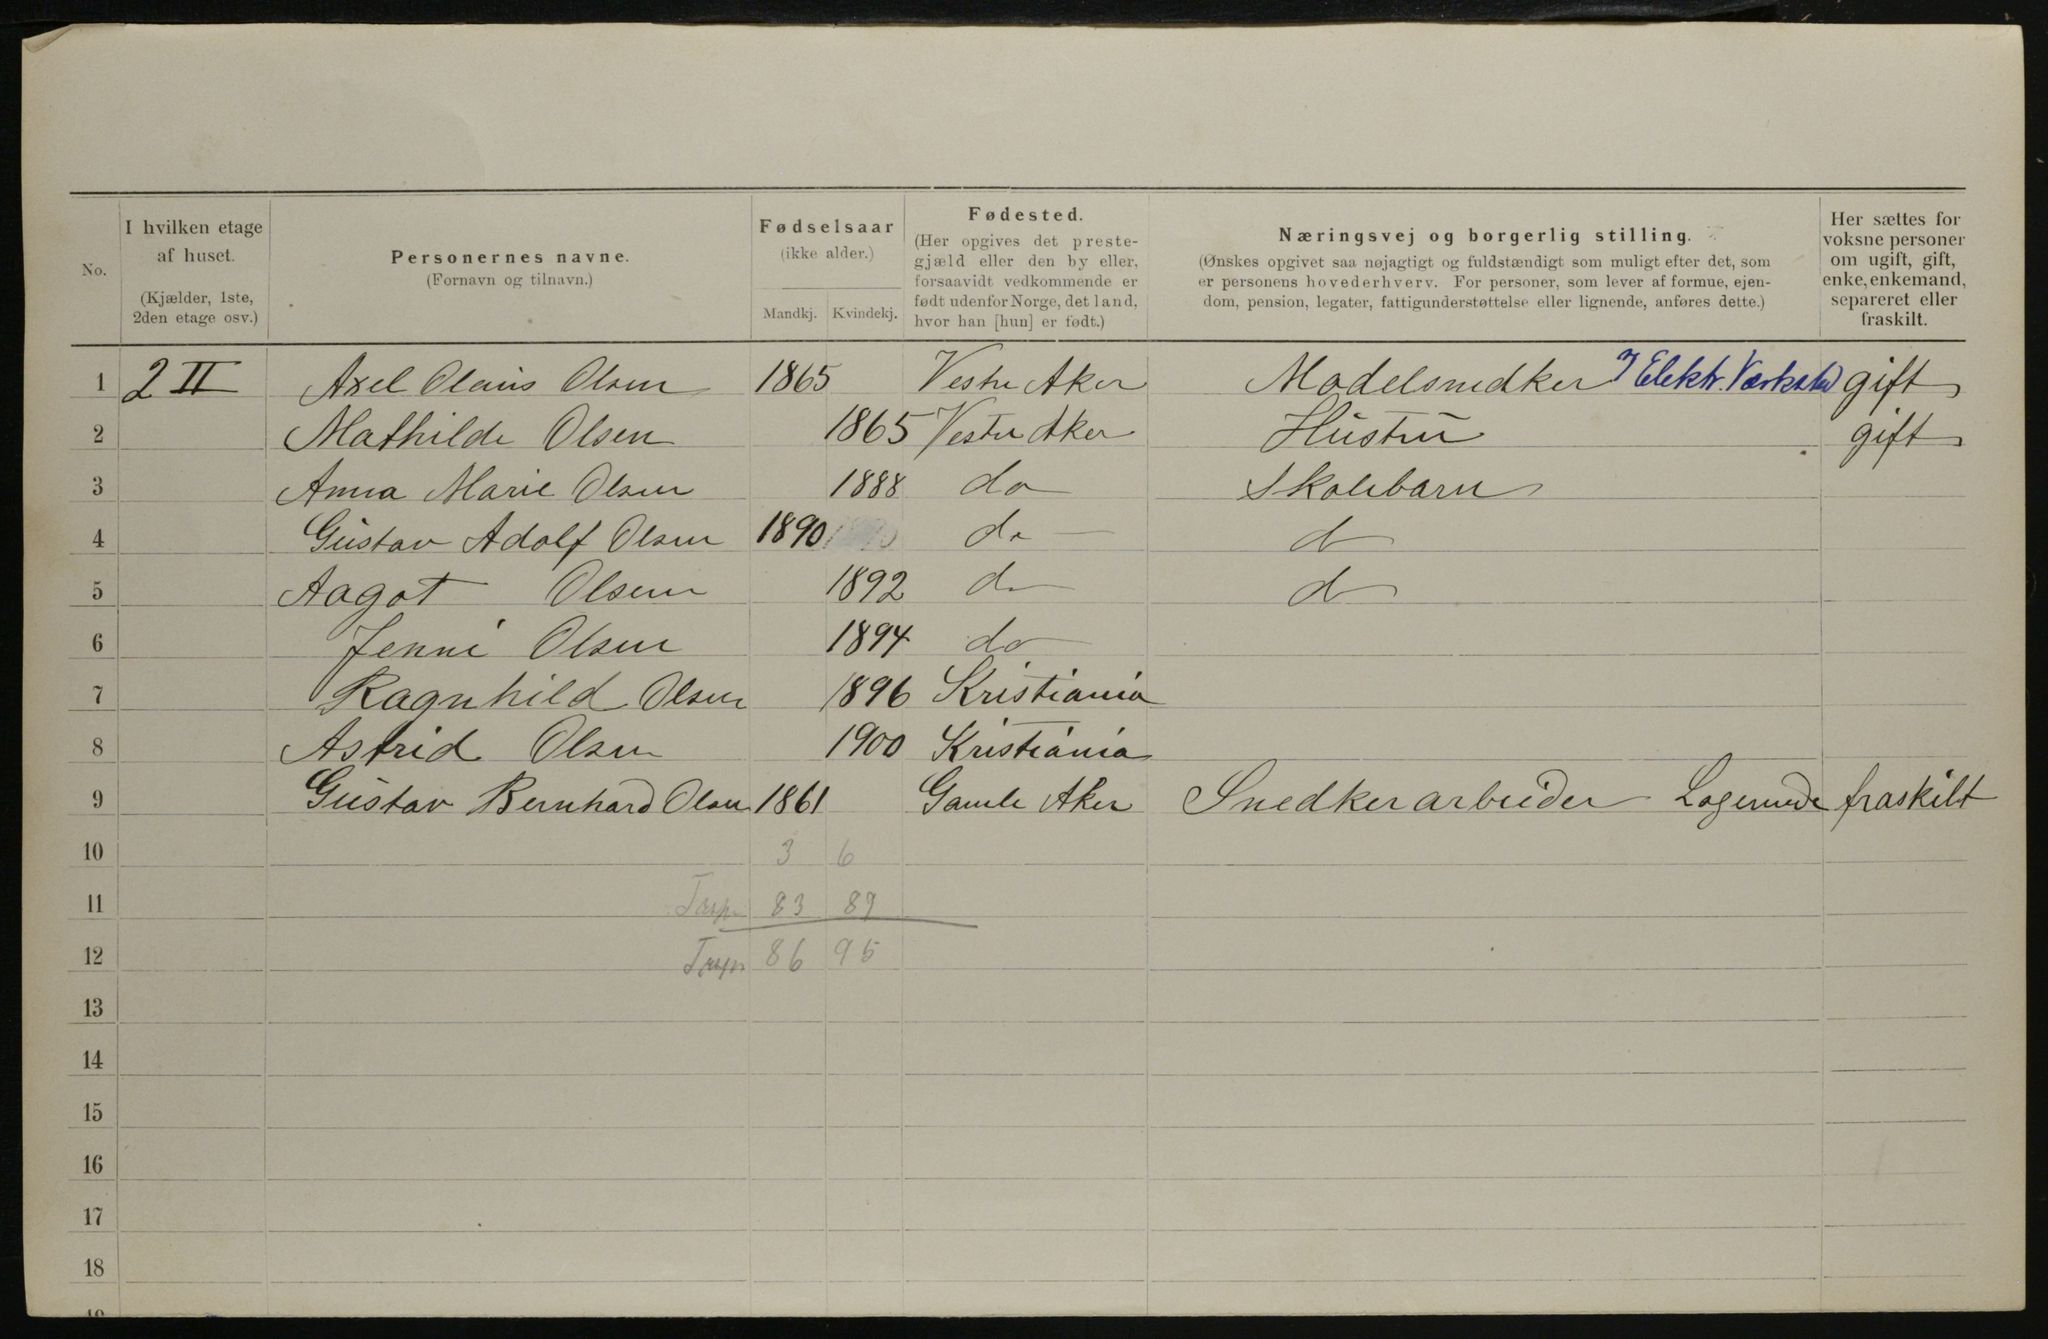 No.
I hvilken etage
af huset.
(Kjælder, 1ste,
2den etage osv.)
Personernes navne.
(Fornavn og tilnavn.)
Fødselsaar
(ikke alder.)
Mandkj. Kvindekj.
Fødested.
(Her opgives det preste-
gjæld eller den by eller,
forsaavidt vedkommende er
født udenfor Norge, det land,
hvor han [hun] er født.)
Næringsvej og borgerlig stilling.
(Ønskes opgivet saa nøjagtigt og fuldstændigt som muligt efter det, som
er personens hovederhverv. For personer, som lever af formue, ejen-
dom, pension, legater, fattigunderstøttelse eller lignende, anføres dette.)
Her sættes for
voksne personer
om ugift, gift,
enke, enkemand,
separeret eller
fraskilt.
1 2 II Axel Olaus Olsen 1865 Vestre Aker Modelsnedker I Elektr. Værksted gift
2 Mathilde Olsen 1865 Vestre Aker Hustru gift
3 Anna Marie Olsen 1888 do Skolebarn
4 Gustav Adolf Olsen 1890 do d
5 Aagot Olsen 1892 do d
6 Jenni Olsen 1894 do
7 Ragnhild Olsen 1896 Kristiania
8 Astrid Olsen 1900 Kristiania
9 Gustav Bernhard Olsen 1861 Gamle Aker Snedkerarbeider Logerende fraskilt
10 3 6
11 83 89
12 86 95
13
14
15
16
17
18